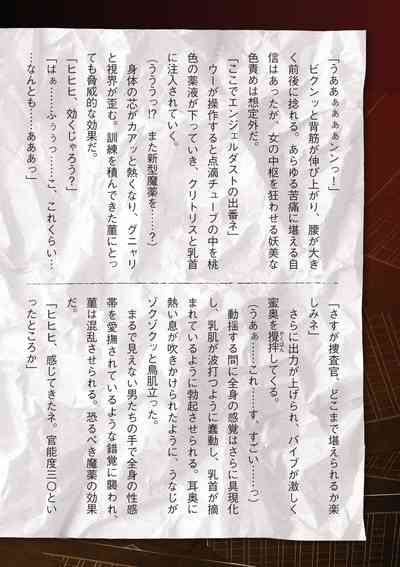 「うああぁぁぁぁンンっ！」
　ビクンッと背筋が伸び上がり、腰が大き
く前後に捻れる。あらゆる苦痛に堪える自
信はあったが、女の中枢を狂わせる妖美な
色責めは想定外だ。
「ここでエンジェルダストの出番ネ」
　ウーが操作すると点滴チューブの中を桃
色の薬液が下っていき、クリトリスと乳首
に注入されていく。
（うううっ!?　また新型魔薬を……？）
　身体の芯がカアッと熱くなり、グニャリ
と視界が歪む。訓練を積んできた菫にとっ
ても脅威的な効果だ。
「ヒヒヒ、効くじゃろう？」
「はぁ……ふぅぅっ……こ、これくらい…
…なんとも……あああっ」
「さすが捜査官、どこまで堪えられるか楽
しみネ」
　さらに出力が上げられ、バイブが激しく
蜜奥を攪拌してくる。
（うあぁ……これ……す、すごい……っ）
　動揺する間に全身の感覚はさらに具現化
し、乳肌が波打つように蠢動し、乳首が摘
まれているように勃起させられる。耳奥に
熱い息が吹きかけられたように、うなじが
ゾクゾクッと鳥肌立った。
　まるで見えない男たちの手で全身の性感
帯を愛撫されているような錯覚に襲われ、
菫は混乱させられる。恐るべき魔薬の効果
だ。
「ヒヒヒ、感じてきたネ。官能度三〇とい
ったところか」